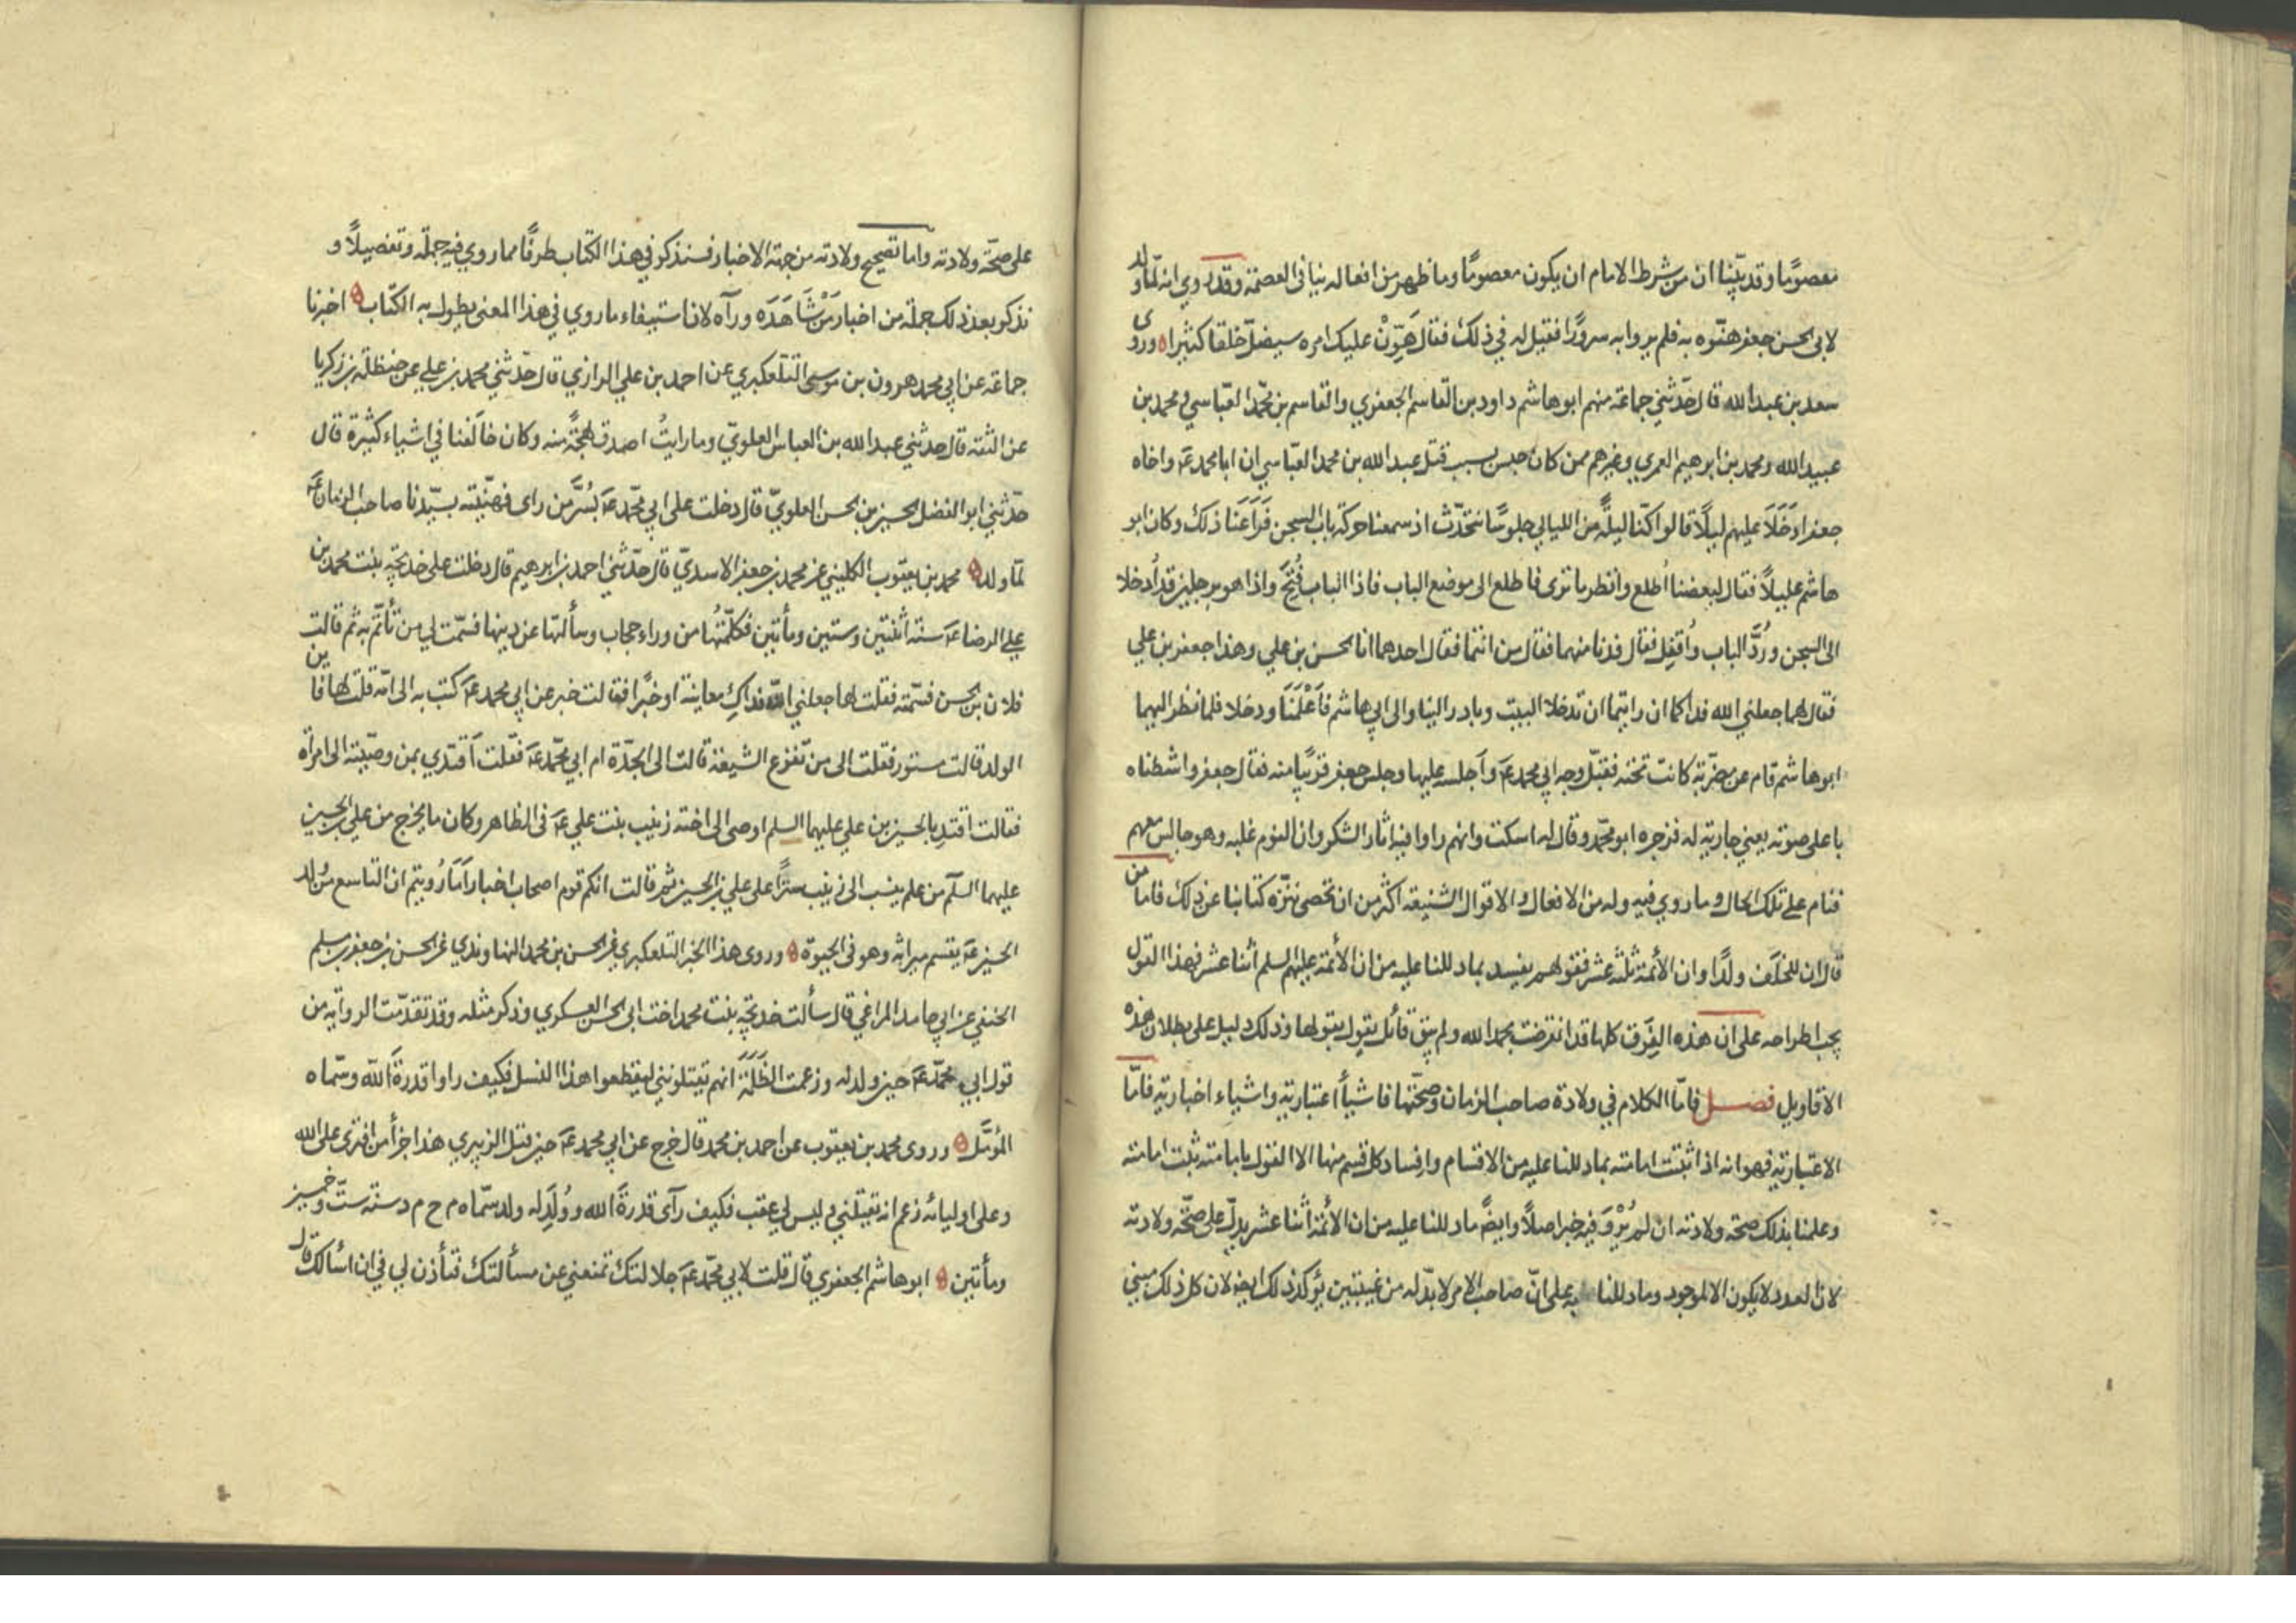 معصومًا وقد بيّنا ان من شرط الامام ان يكون معصومًا وما ظهر من افعاله ينافى العصمة وقد روي انه لمّا ولد
لابى الحسن جعفر هنّوه به فلم يروا به سرورًا فقيل له في ذلك فقال هَوِّنْ عليك امره سيضلّ خلقا كثيرا وروى
سعد بن عبد الله قال حدّثني جماعة منهم ابو هاشم داود بن القاسم الجعفري والقاسم بن محمّد العبّاسي ومحمد بن
عبيد الله ومحمد بن ابرهيم العمري وغيرهم ممن كان حبس بسبب قتل عبد الله بن محمد العبّاسي ان ابا محمد عَ واخاه
جعفرا دَخَلَا عليهم ليلًا قالوا كنّا ليلةً من الليالي جلوسًا نتحدّث اذ سمعنا حركة باب السجن فَرَاعَنَا ذلك وكان ابو
هاشم عليلاً فقال لبعضنا اُطلع وانظر ما ترى فاطلع الى موضع الباب فاذا الباب فُتِحَ واذا هو برجلين قد اُدخلا
الى السجن ورُدَّ الباب واُقفِل فقال فدنا منهما فقال من انتما فقال احدهما انا الحسن بن علي وهذا جعفر بن علي
فقال لهما جعلني الله فداكما ان رايتما ان تدخلا البيت وبادر الينا والى ابي هاشم فَاَعْلَمَنَا ودخلا فلما نظر اليهما
ابو هاشم قام عن مضربة كانت تحته فقبّل وجه ابي محمد عَ وَاَجلسه عليها وجلس جعفر قريبًا منه فقال جعفر واشطناه
باعلى صوته يعني جارية له فزجره ابو محمّد وقال له اسكت وانهم راوا فيه اثار السّكر وان النوم غلبه وهو جالس معهم
فنام على تلك الحال وما روي فيه وله من الافعال والاقوال الشنيعة اكثر من ان تحصى ننزّه كتابنا عن ذلك فاما من
قال ان للخلف ولدًا وان الأئمة ثلثة عشر فقولهم يفسد بما دللنا عليه من ان الأئمة عليهم السلم اثنا عشر فهذا القول
يجب اطراحه على ان هذه الفِرَق كلها قد انقرضت بحمد الله ولم يبق قائل يقول بقولها وذلك دليل على بطلان هذه
الاقاويل فصل فامّا الكلام في ولادة صاحب الزمان وصحّتها فاشياأ اعتبارية واشياء اخبارية فامّا
الاعتبارية فهو انه اذا ثبتت امامته بما دللنا عليه من الاقسام وافساد كل قسم منها الا القول بامامته ثبتت امامته
وعلمنا بذلك صحة ولادته ان لم يُرْوَ فيه خبر اصلاً وايضًا ما دللنا عليه من ان الأئمة اثنا عشر يدلّ على صحّة ولادته
لان العدد لا يكون الا لموجود وما دللنا على انّ صاحب الامر لا بدّ له من غيبتين يؤكد ذلك ايضا لان كل ذلك مبني
على صحّة ولادته واما تصحيح ولادته من جهة الاخبار فسنذكر في هذا الكتاب طرفًا مما روي فيه جملة وتفصيلًا و
نذكر بعد ذلك جملة من اخبار مَنْ شَاهَدَه ورآه لان استيفاء ما روي في هذا المعنى يطول به الكتاب اخبرنا
جماعة عن ابي محمد هرون بن موسى التلعكبري عن احمد بن علي الرازي قال حدّثني محمد بن علي عن حنظلة بن زكريا
عن الثقة قال حدثني عبد الله بن العباس العلويّ وما رايتُ اصدق لهجةً منه وكان خالَفنا في اشياء كثيرة قال
حدّثني ابو الفضل الحسين بن الحسن العلويّ قال دخلت على ابي محمّد عَ بسُرَّ من راى فهنّيته بسيّدنا صاحب الزمان عَ
لمّا ولد محمد بن يعقوب الكليني عن محمد بن جعفر الاسديّ قال حدّثني احمد بن ابرهيم قال دخلت على خديجة بنت محمد بن
علي الرضا عَ سنة اثنتين وستين ومأتين فكلّمتُها من وراء حجاب وسألتها عن دينها فسمّت لي من تأتمّ به ثم قالت
فلان بن الحسن فسمّته فقلت لها جعلني الله فداكِ معاينة او خبرًا فقالت خبر عن ابي محمد عَ كتب به الى امّه قلت لها فاين
الولد قالت مستور فقلت الى من تفزع الشيعة قالت الى الجدّة ام ابي محمّد عَ فقلت اَقتدي بمن وصيّته الى امرأة
فقالت اقتدِ بالحسين بن علي عليهما السلم اوصى الى اخته زينب بنت علي عَ فى الظاهر وكان ما يخرج من علي بن الحسين
عليهما السلم من علم ينسب الى زينب سترًا على علي بن الحسين ثم قالت انكم قوم اصحاب اخبار اَمَا رُويتم ان التاسع من ولد
الحسين عَ يقسم ميراثه وهو فى الحيوة وروى هذا الخبر التلعكبري عن الحسن بن محمد النهاوندي عن الحسن بن جعفر بن مسلم
الحنفي عن ابي حامد المراغي قال سألت خديجة بنت محمد اخت ابى الحسن العسكري وذكر مثله وقد تقدّمت الرواية من
قول ابي محمّد عَ حين ولد له وزعمت الظَلَمَة انهم يقتلونني ليقطعوا هذا النسل فكيف راوا قدرةَ الله وسمّاه
المؤمَّل وروى محمد بن يعقوب عن احمد بن محمد قال خرج عن ابي محمد عَ حين قتل الزبيري هذا جزأ من افترى على الله
وعلى اوليائه زعم انه يقتلني وليس لي عقب فكيف رآى قدرةَ الله ووُلِدَ له ولد سمّاه م ح م د سنة ستّ وخمسين
ومأتين ابو هاشم الجعفري قال قلت لابي محمّد عَ جلالتك تمنعني عن مسألتك فتأذن لي في ان اسألك قال